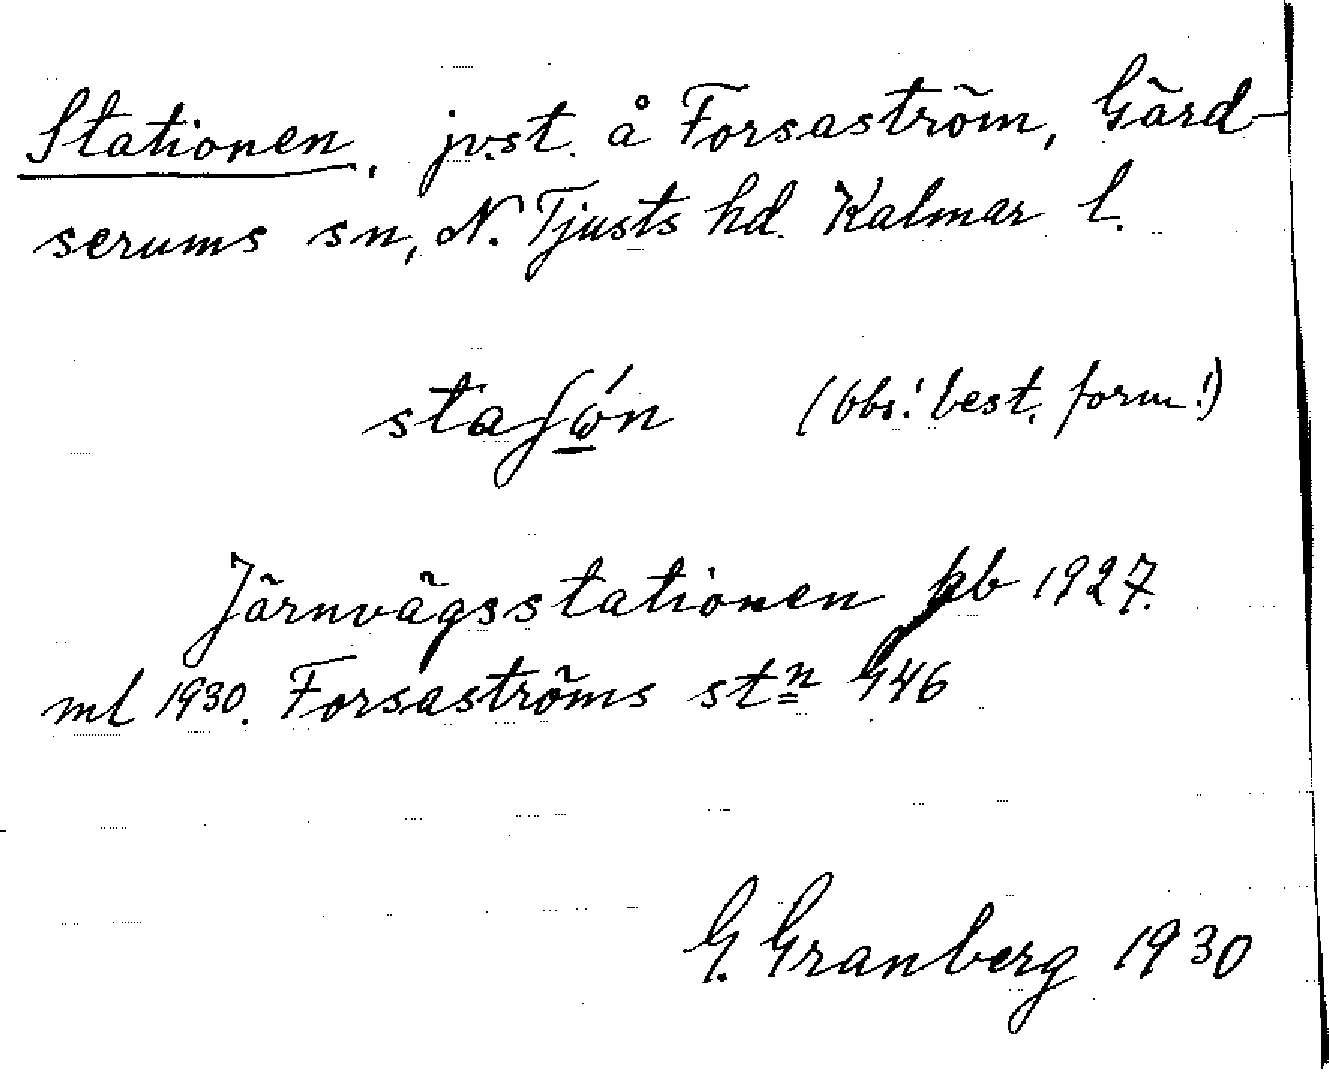 Stationen, jvst. å Forsaström, Gärd-
serums sn, N. Tjusts hd. Kalmar l.
staʃώ̲n (Obs.! best. form!)
Järnvägsstationen pb 1927.
ml 1930. Forsaströms stn G46
G. Granberg 1930